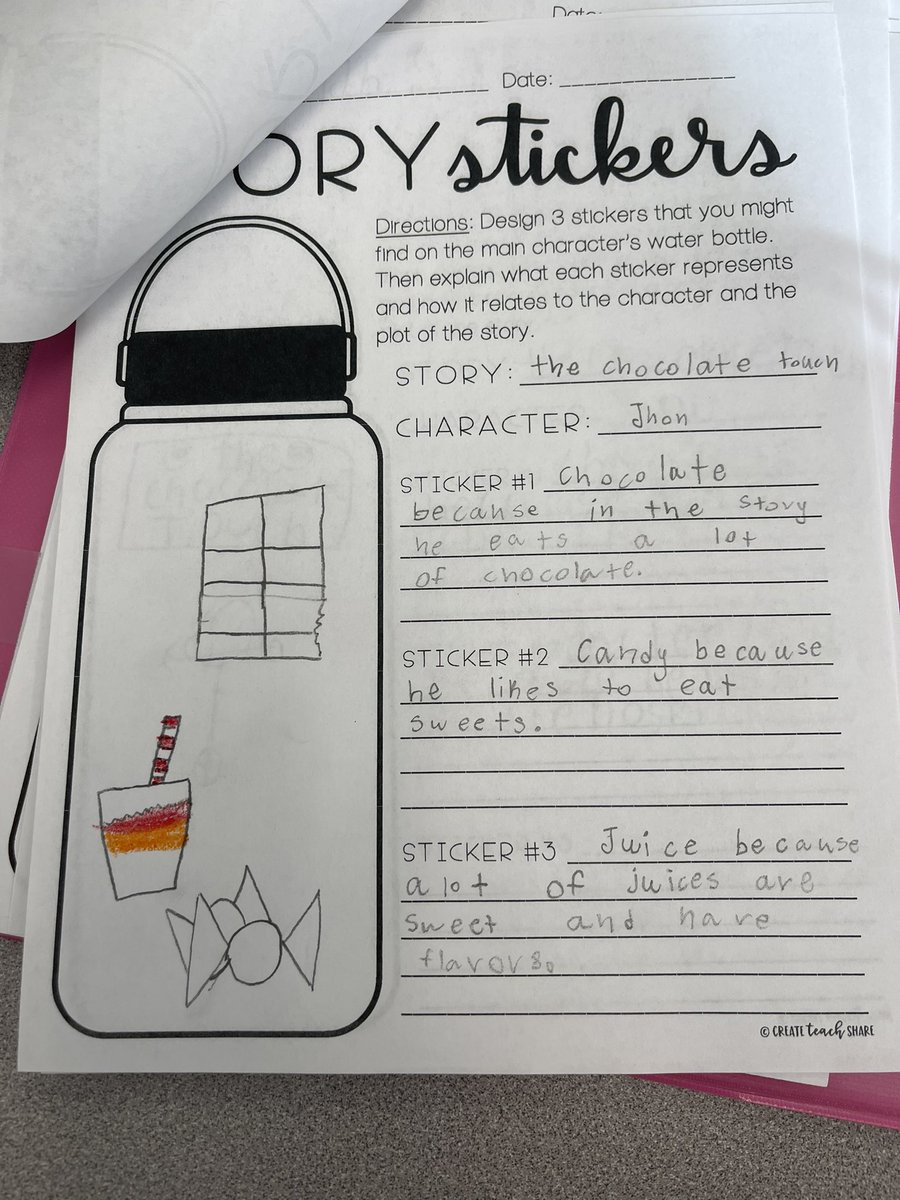 Date:
Date: 
ORY stickers
Directions: Design 3 stickers that you might
find on the main character's water bottle.
Then explain what each sticker represents
and how it relates to the character and the
plot of the story.
STORY: the chocolate touch
CHARACTER: Jhon
STICKER #1 Chocolate
because in the story
he eats a lot
of chocolate.
STICKER #2 Candy because
he likes to eat
sweets.
STICKER #3 Juice because
a lot of juices are
sweet and have
flavors.
© CREATE teach SHARE